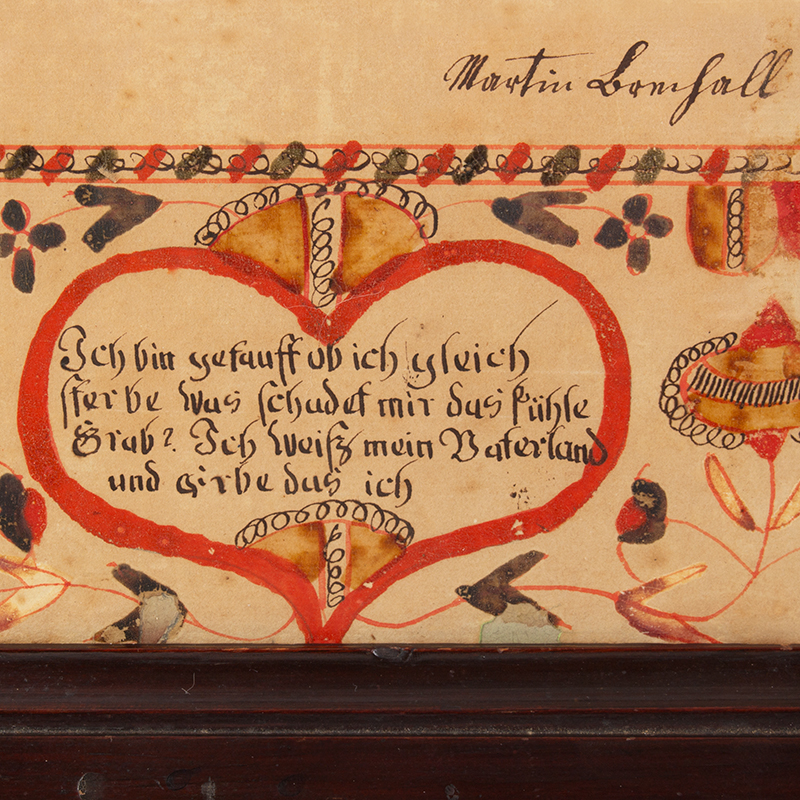 Martin Brechall
Ich bin getauft ob ich gleich
sterbe was schadet mir das kühle
Grab? Ich weiß mein Vaterland
und eirbe das ich